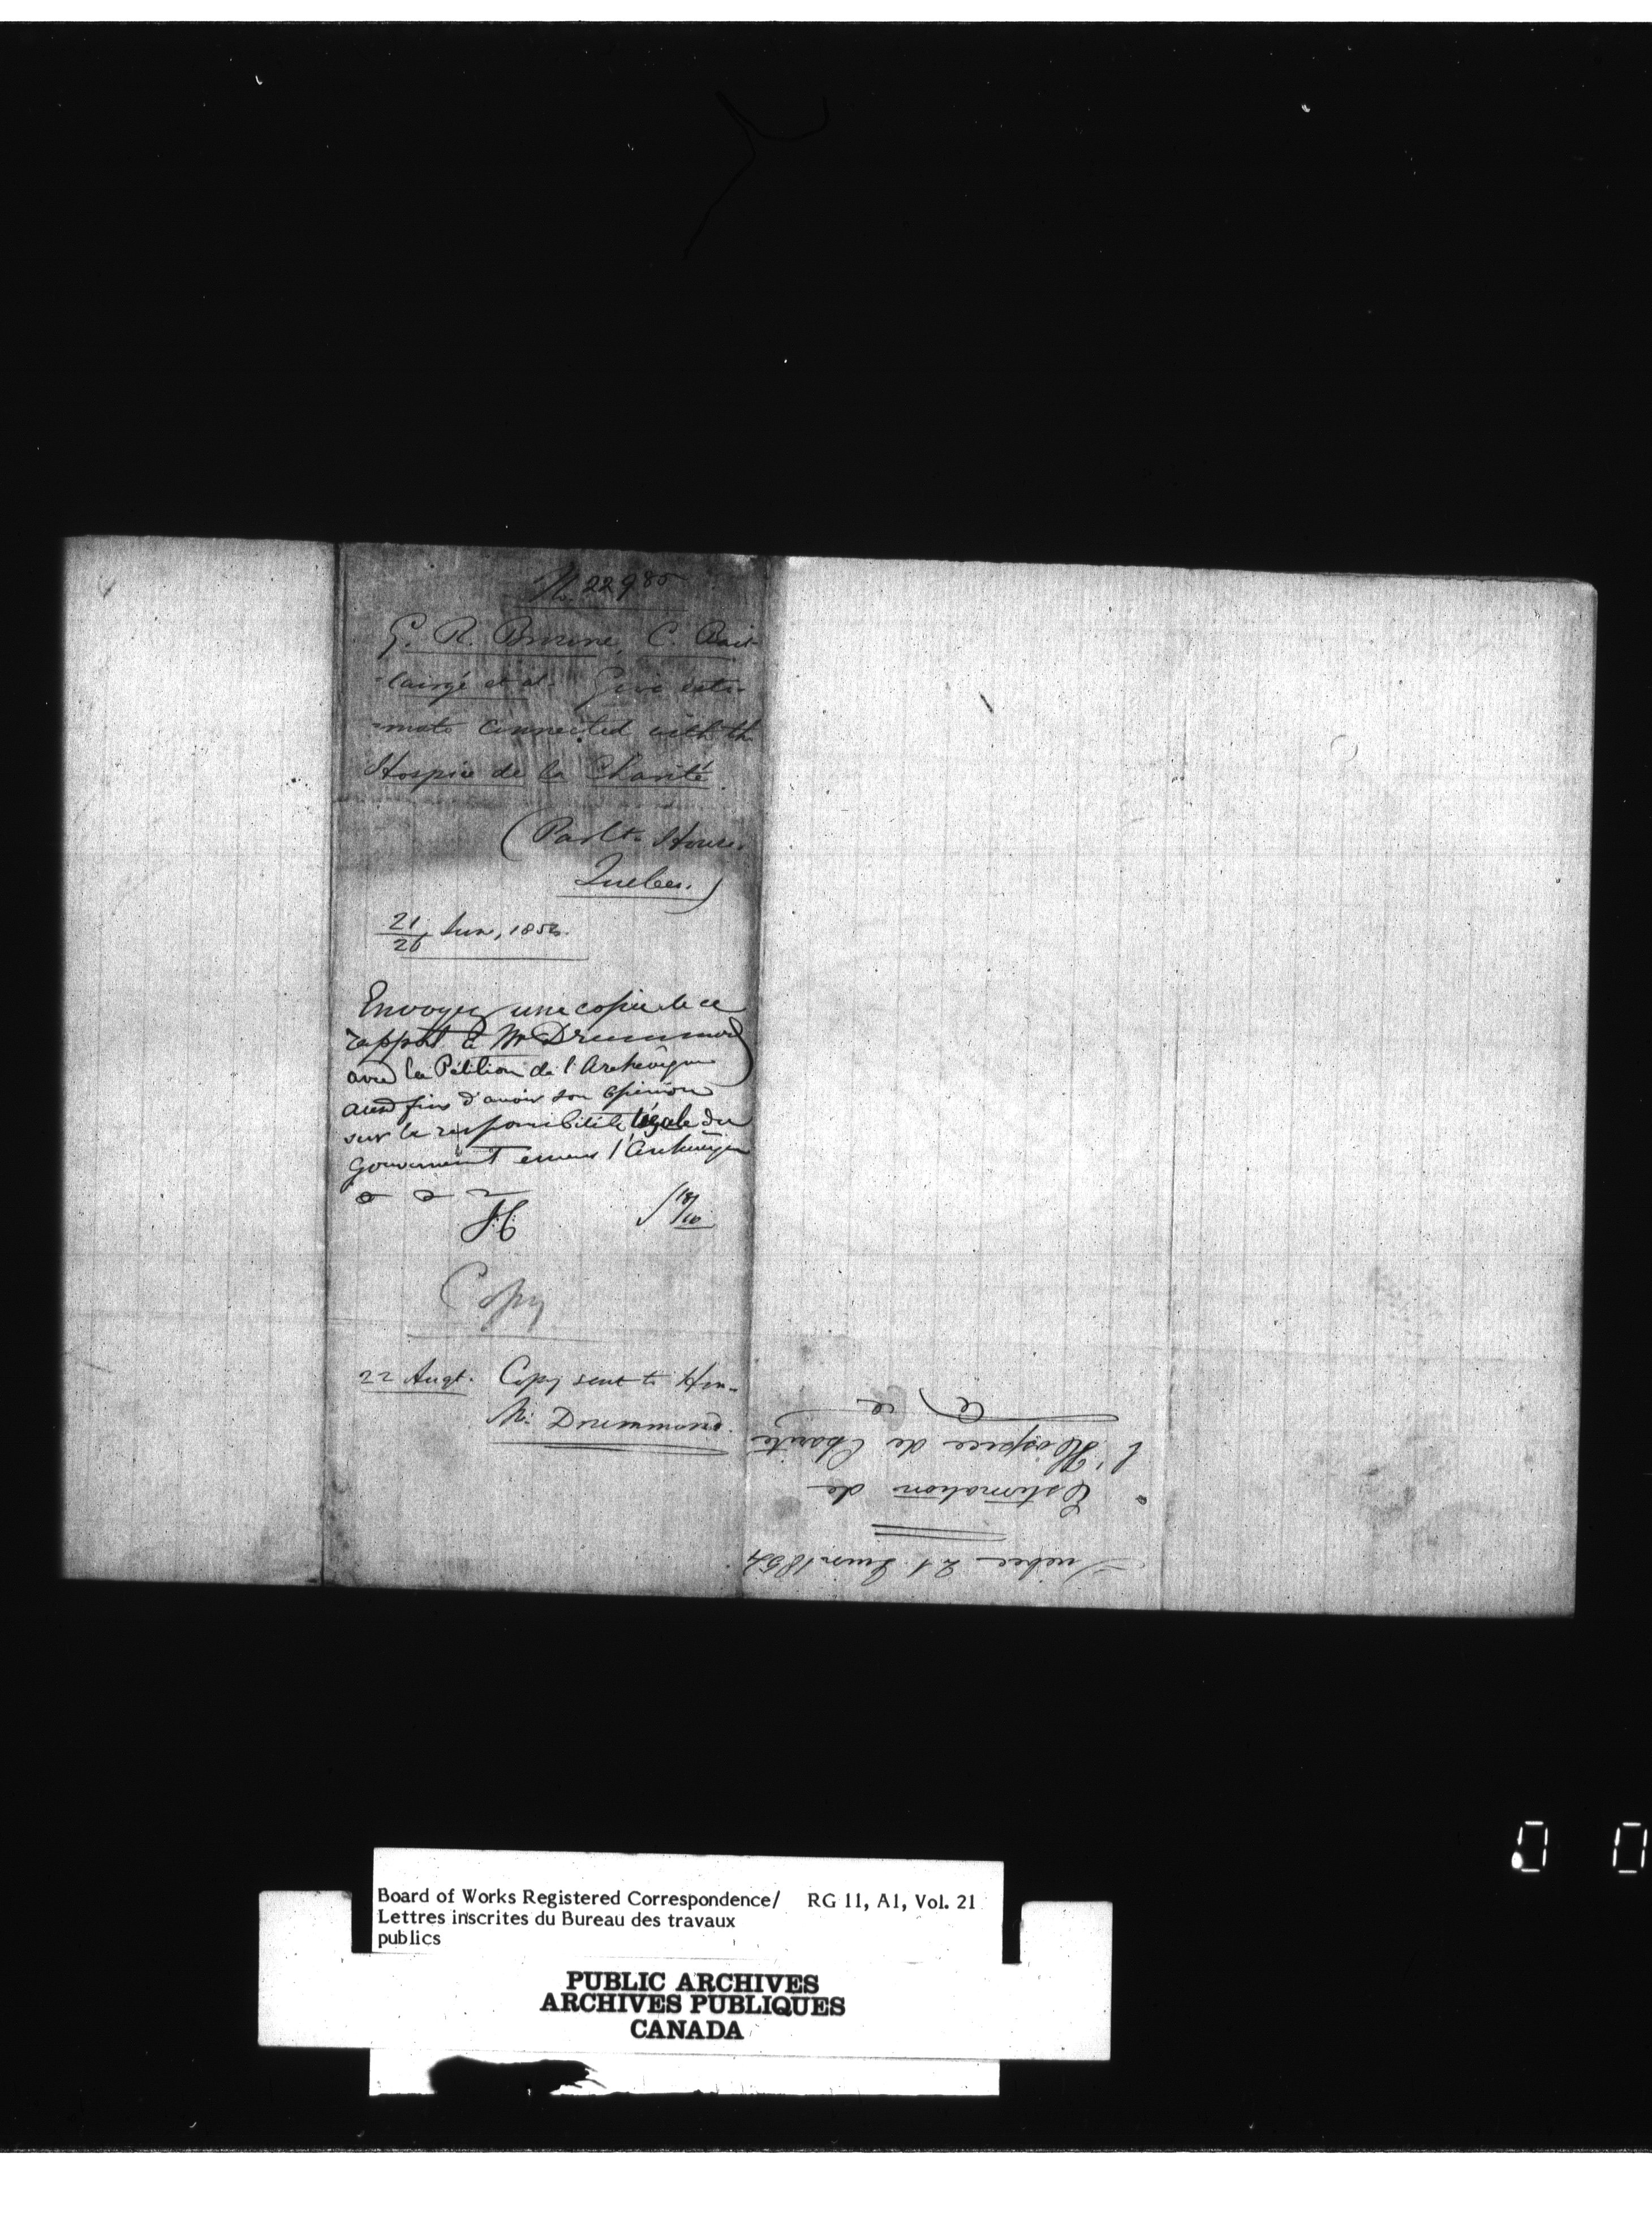 No. 22980
G. R. Browne, C. Bail-
-lairgé et al. Give esti-
-mate connected with the
Hospice de la Charité
(Parlt. House.
Quebec.)
21/26 June, 185
Envoyez une copie de ce
rapport à Mr Drummond
avec la Pétition de l'Archevêque
aux fins d'avoir son opinion
sur la responsibilité légale du
Gouvernement envers l'Archevêque
Copy
22 Augt. Copy sent to Hon.
Mr. Drummond.
Québec 21 Juin 1854
Estimation de
l'Hospice de Charité
Board of Works Registered Correspondence/ RG 11, A1, Vol. 21
Lettres inscrites du Bureau des travaux
publics
PUBLIC ARCHIVES
ARCHIVES PUBLIQUES
CANADA
0 0